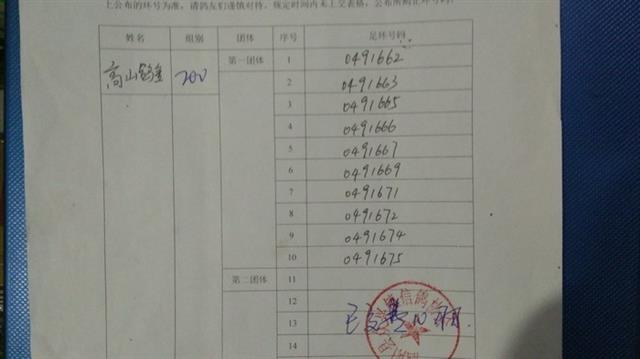 上公布的环号为准，请鸽友们谨慎对待。规定时间内未上交表格，公布所购化环号码！
姓名 组别 团体 序号 足环号码
高山 200 第一团体 1 0491662
2 0491663
3 0491665
4 0491666
5 0491667
6 0491669
7 0491671
8 0491672
9 0491674
10 0491675
第二团体 11
12
13
14
信鸽